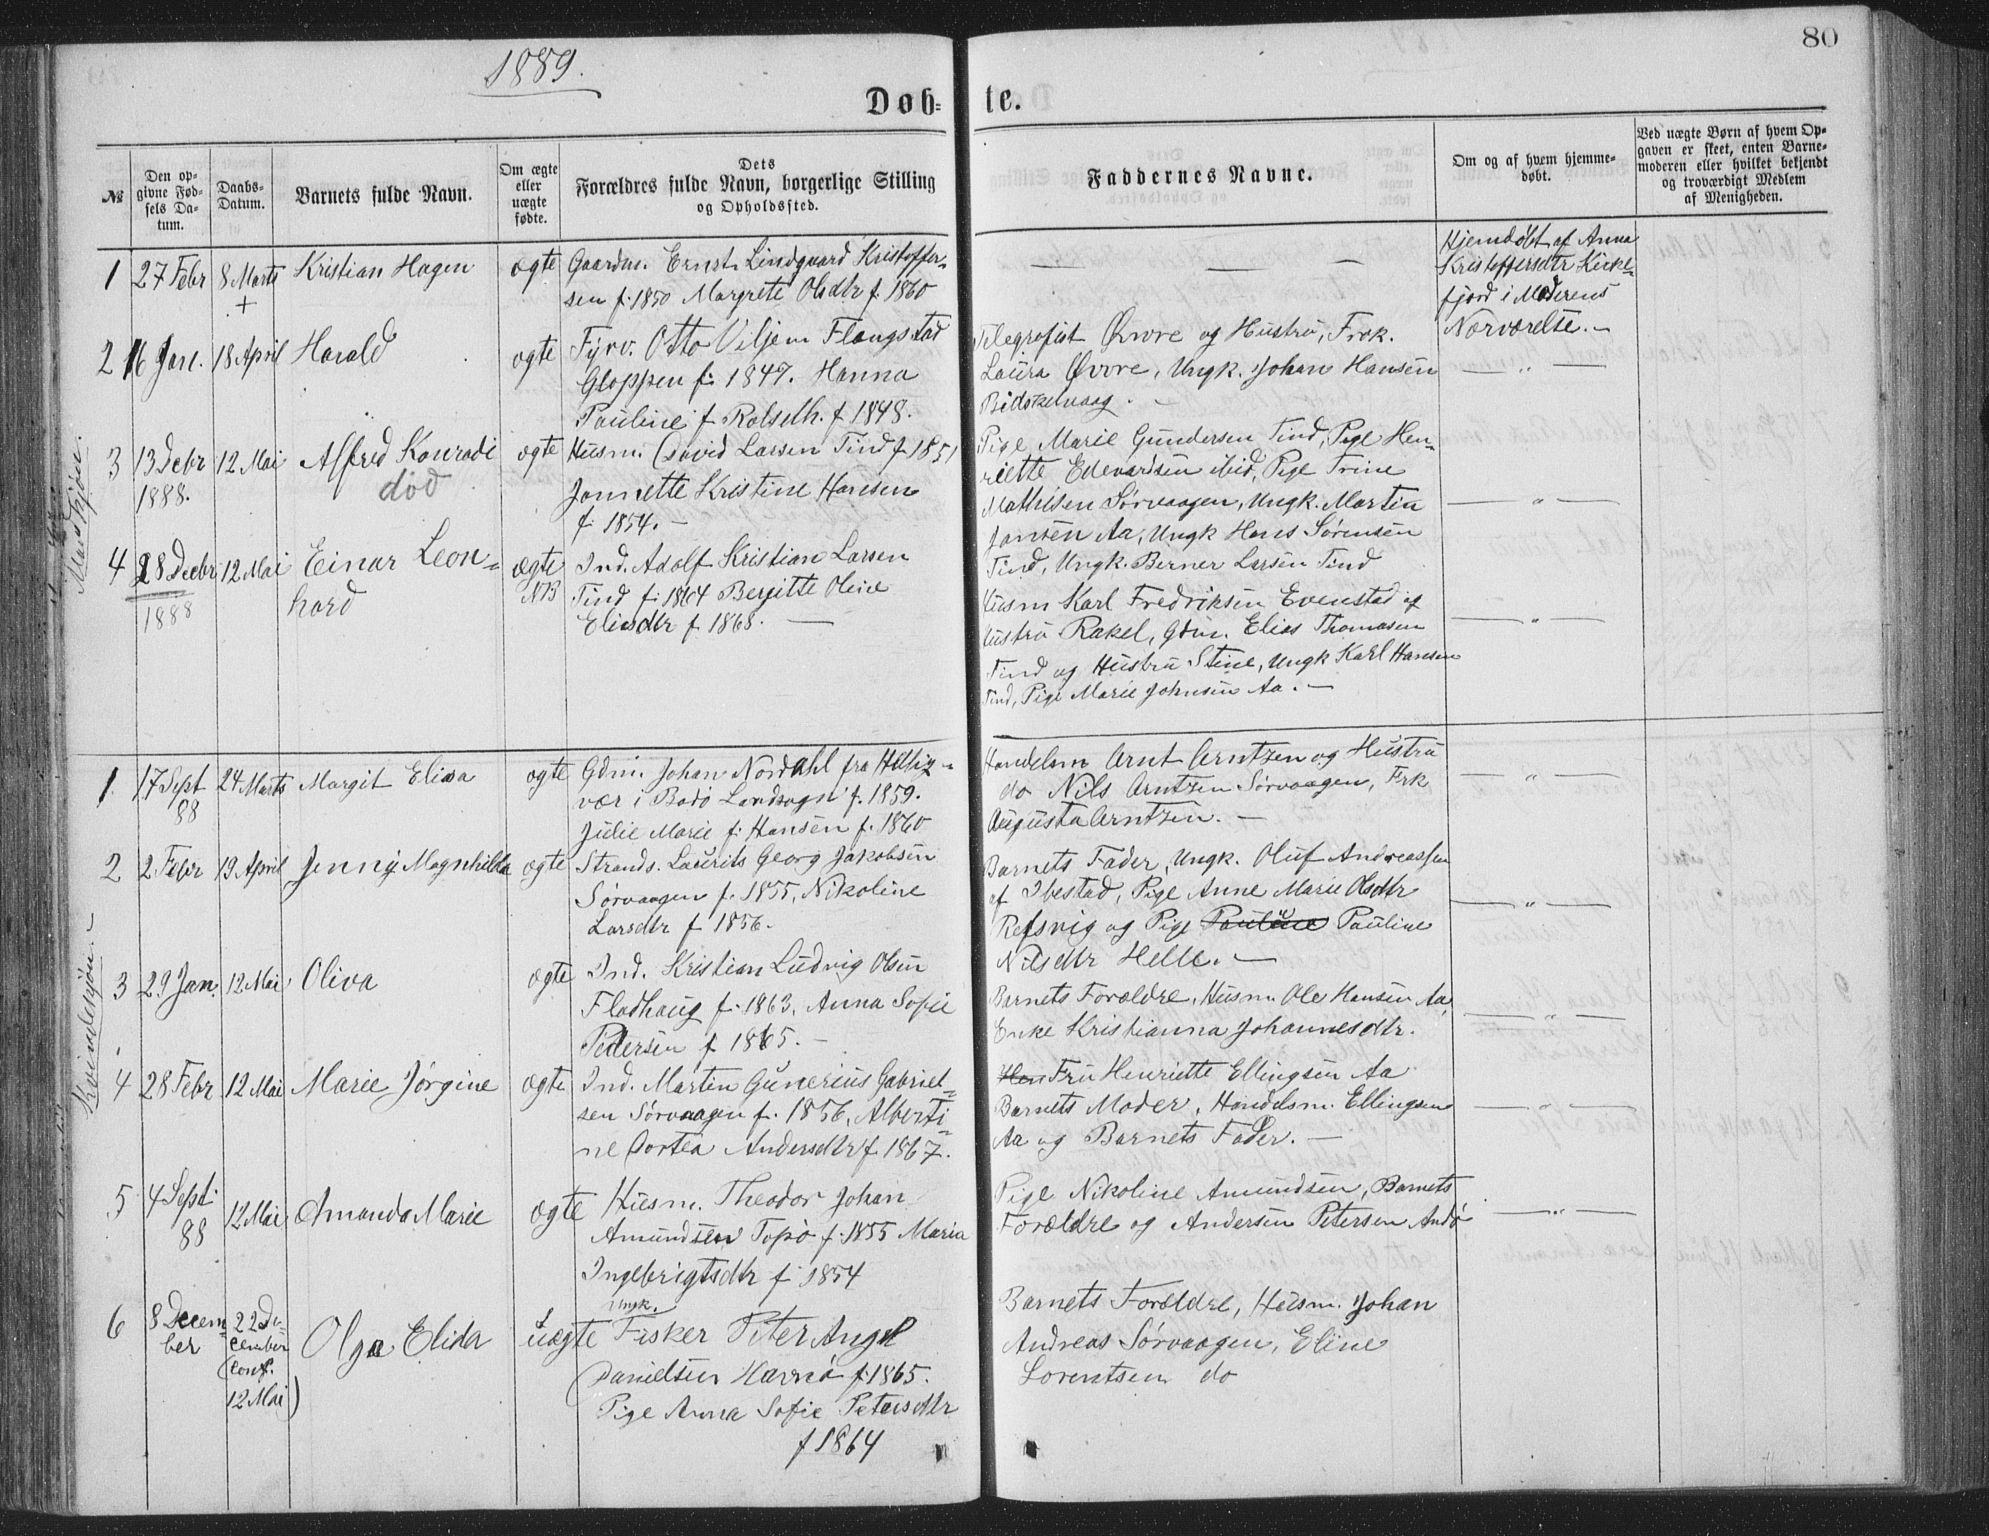 1889.
80
Døb-
te.
№
Den op-
givne Fød-
sels Da-
tum.
Daabs-
Datum.
Barnets fulde Navn.
Om ægte
eller
uægte
fødte.
Dets
Forældres fulde Navn, borgerlige Stilling
og Opholdssted.
Faddernes Navne.
Om og af hvem hjemme-
døbt.
Ved uægte Børn af hvem Op-
gaven er skeet, enten Barne-
moderen eller hvilket bekjendt
og troværdigt Medlem
af Menigheden.
Mandkjøn.
1 27 Febr 8 Marts + Kristian Hagen ægte
Gaardm. Ernst Lindgaard Kristoffer-
sen f. 1850 Margrete Olsdtr f. 1860
— — —
Hjemdøbt af Anna
Kristoffersdtr Kirke-
fjord i Moderens
Nærværelse. -
2 16 Jan. 18 April Harald ægte
Fyrv. Otto Viljem Flongstad
Gloppen f. 1847. Hanna
Pauline f. Rolseth. f. 1848.
Telegrafist Øvre og Hustru, Frk.
Laura Øvre, Ungk. Johan Hansen
— " —
3 13 Debr 1888. 12 Mai Alfred Konradi ægte
død
Husm. David Larsen Tind f. 1851
Jannette Kristine Hansen
f. 1854. -
Pige Marie Gundersen Tind, Pige Hen-
riette Edevardsen ibid, Pige Trine
Mathisen Sørvaagen, Ungk. Martin
Jansen Aa, Ungk Hans Sørensen
Tind, Ungk. Berner Larsen Tind
— " —
4 28 Decbr 1888 12 Mai Einar Leon-
hard
ægte
NB
Ind. Adolf Kristian Larsen
Tind f. 1864 Bergitte Oline
Eliasdtr f. 1868. —
Husm Karl Fredriksen Evenstad og
Hustru Rakel, Gdm. Elias Thomasen
Tind og Hustru Stine, Ungk Karl Hansen
Tind, Pige Marie Johnsen Aa. -
— " —
Kvindekjøn. -
1 17 Sept 88 24 Marts Margit Elisa ægte
Gdm. Johan Nordahl fra Hellig-
vær i Bodø Landsogn f. 1859.
Julie Marie f. Hansen f. 1860
Handelsm Arnt Arntzen og Hustru
do Nils Arntzen Sørvaagen, Frk
Augusta Arntzen. -
— " —
2 2 Febr 19 April Jenny Magnhilda ægte
Strands. Laurits Georg Jakobsen
Sørvaagen f. 1855, Nikoline
Larsdtr f 1856.
Barnets Fader, Ungk. Oluf Andreassen
af Ibestad, Pige Anne Marie Olsdtr
Refsvig og Pige Pauline Pauline
Nilsdtr Helle. -
— " —
3 29 Jan. 12 Mai Oliva ægte
Ind. Kristian Ludvig Olsen
Fladhaug f. 1863, Anna Sofie
Pedersen f 1865. -
Barnets Forældre, Husm. Ole Hansen Aa,
Enke Kristianna Johannesdtr.
— " —
4 28 Febr 12 Mai Marie Jørgine ægte
Ind. Marten Gunerius Gabriel-
sen Sørvaagen f. 1856, Alberti-
ne Dortea Andersdtr f. 1867.
Hen Fru Henriette Ellingsen Aa
Barnets Moder, Handelsm. Ellingsen
Aa og Barnets Fader. -
— " —
5 4 Sept 88 12 Mai Amanda Marie ægte
Husm. Theodor Johan
Amundsen Topø f. 1855 Maria
Ingebrigtsdtr f 1854
Pige Nikoline Amundsen, Barnets
Forældre og Andersen Petersen Andø
— " —
6 8 Decem-
ber
22 De-
cember
(conf.
12 Mai)
Olga Elida
uægte
Ungk.
Fisker Peter Angel
Danielsen Havnø f. 1865.
Pige Anna Sofie Petersdtr
f 1864
Barnets Forældre, Husm. Johan
Andreas Sørvaagen, Eline
Lorentsen do